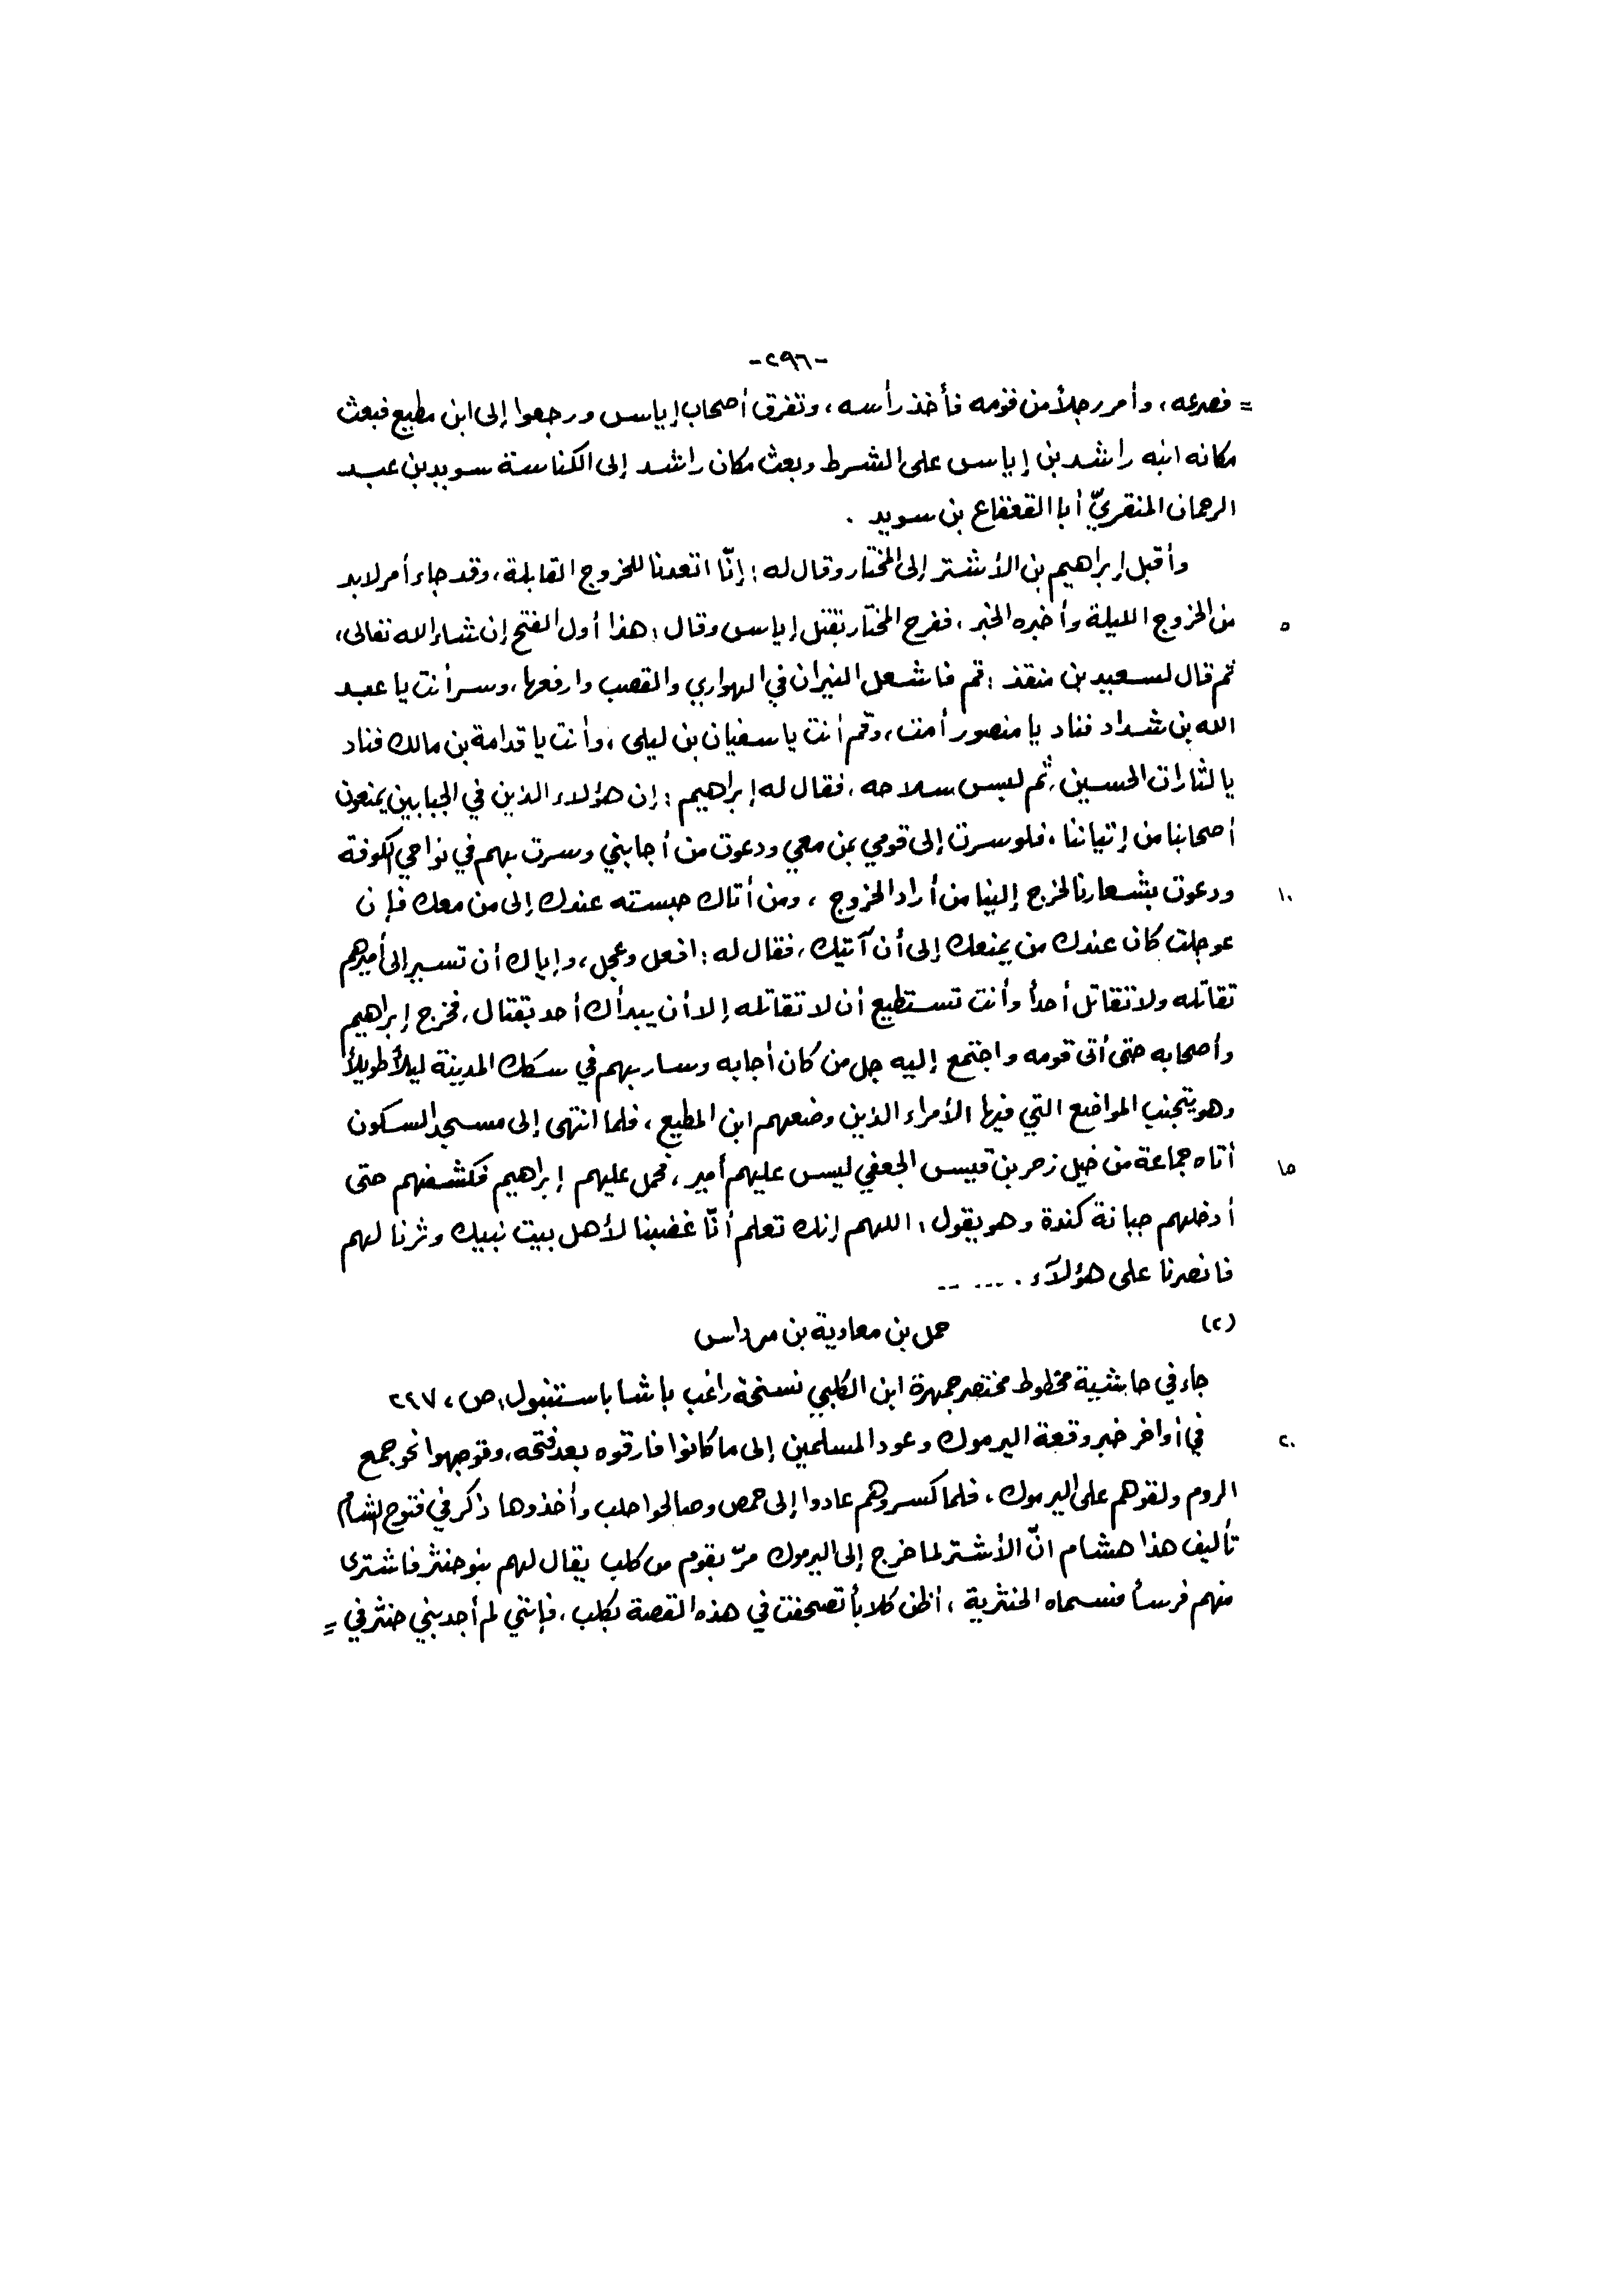 -٢٩٦-
= فصرعه، وأمر رجلاً من قومه فأخذ رأسه، وتفرق أصحاب إياس ورجعوا إلى ابن مطيع فبعث
مكانه ابنه راشد بن إياس على الشرط وبعث مكان راشد إلى الكناسة سويد بن عبد
الرحمان المنقريّ أبا القعقاع بن سويد .
وأقبل إبراهيم بن الأشتر إلى المختار وقال له : إنّا اتعدنا للخروج القابلة، وقد جاء أمر لابد
٥ من الخروج الليلة وأخبره الخبر، ففرح المختار بقتل إياس وقال : هذا أول الفتح إن شاء الله تعالى،
ثم قال لسعيد بن منقذ : قم فاشعل النيران في الهواري والقصب وارفعها، وسر أنت يا عبد
الله بن شداد فناد يا منصور أمت، وقم أنت يا سفيان بن ليلى، وأنت يا قدامة بن مالك فناد
يا لثارات الحسين، ثم لبس سلاحه، فقال له إبراهيم : إن هؤلاء الذين في الجبابين يمنعون
أصحابنا من إتياننا، فلو سرت إلى قومي بمن معي ودعوت من أجابني وسرت بهم في نواحي الكوفة
١٠ ودعوت بشعارنا لخرج إلينا من أراد الخروج ، ومن أتاك حبسته عندك إلى من معك فإن
عوجلت كان عندك من يمنعك إلى أن آتيك، فقال له : افعل وعجل، وإياك أن تسير إلى أميرهم
تقاتله ولا تقاتل أحداً وأنت تستطيع أن لا تقاتله إلا أن يبدأك أحد بقتال، فخرج إبراهيم
وأصحابه حتى أتى قومه واجتمع إليه جل من كان أجابه وسار بهم في سكك المدينة ليلاً طويلاً
وهو يتجنب المواضع التي فيها الأمراء الذين وضعهم ابن المطيع ، فلما انتهى إلى مسجد السكون
١٥ أتاه جماعة من خيل زحر بن قيس الجعفي ليس عليهم أمير ، فحمل عليهم إبراهيم فكشفهم حتى
أدخلهم جبانة كندة وهو يقول : اللهم إنك تعلم أنّا غضبنا لأهل بيت نبيك وثرنا لهم
فانصرنا على هؤلآء . --- --
(٢) حمل بن معاوية بن مرداس
جاء في حاشية مخطوط مختصر جمهرة ابن الكلبي نسخة راغب باشا باستنبول، ص، ٢٦٧
٢٠ في أواخر خبر وقعة اليرموك وعود المسلمين إلى ما كانوا فارقوه بعد فتحه، وتوجهوا نحو جمع
الروم ولقوهم على اليرموك، فلما كسروهم عادوا إلى حمص وصالحوا حلب وأخذوها ذكر في فتوح الشام
تأليف هذا هشام انّ الأشتر لما خرج إلى اليرموك مرّ بقوم من كلب يقال لهم بنو حنثر فاشترى
منهم فرساً فسماه الحنثرية ، أظن كلاباً تصحفت في هذه القصة بكلب، فإنني لم أجد بني حنثر في =